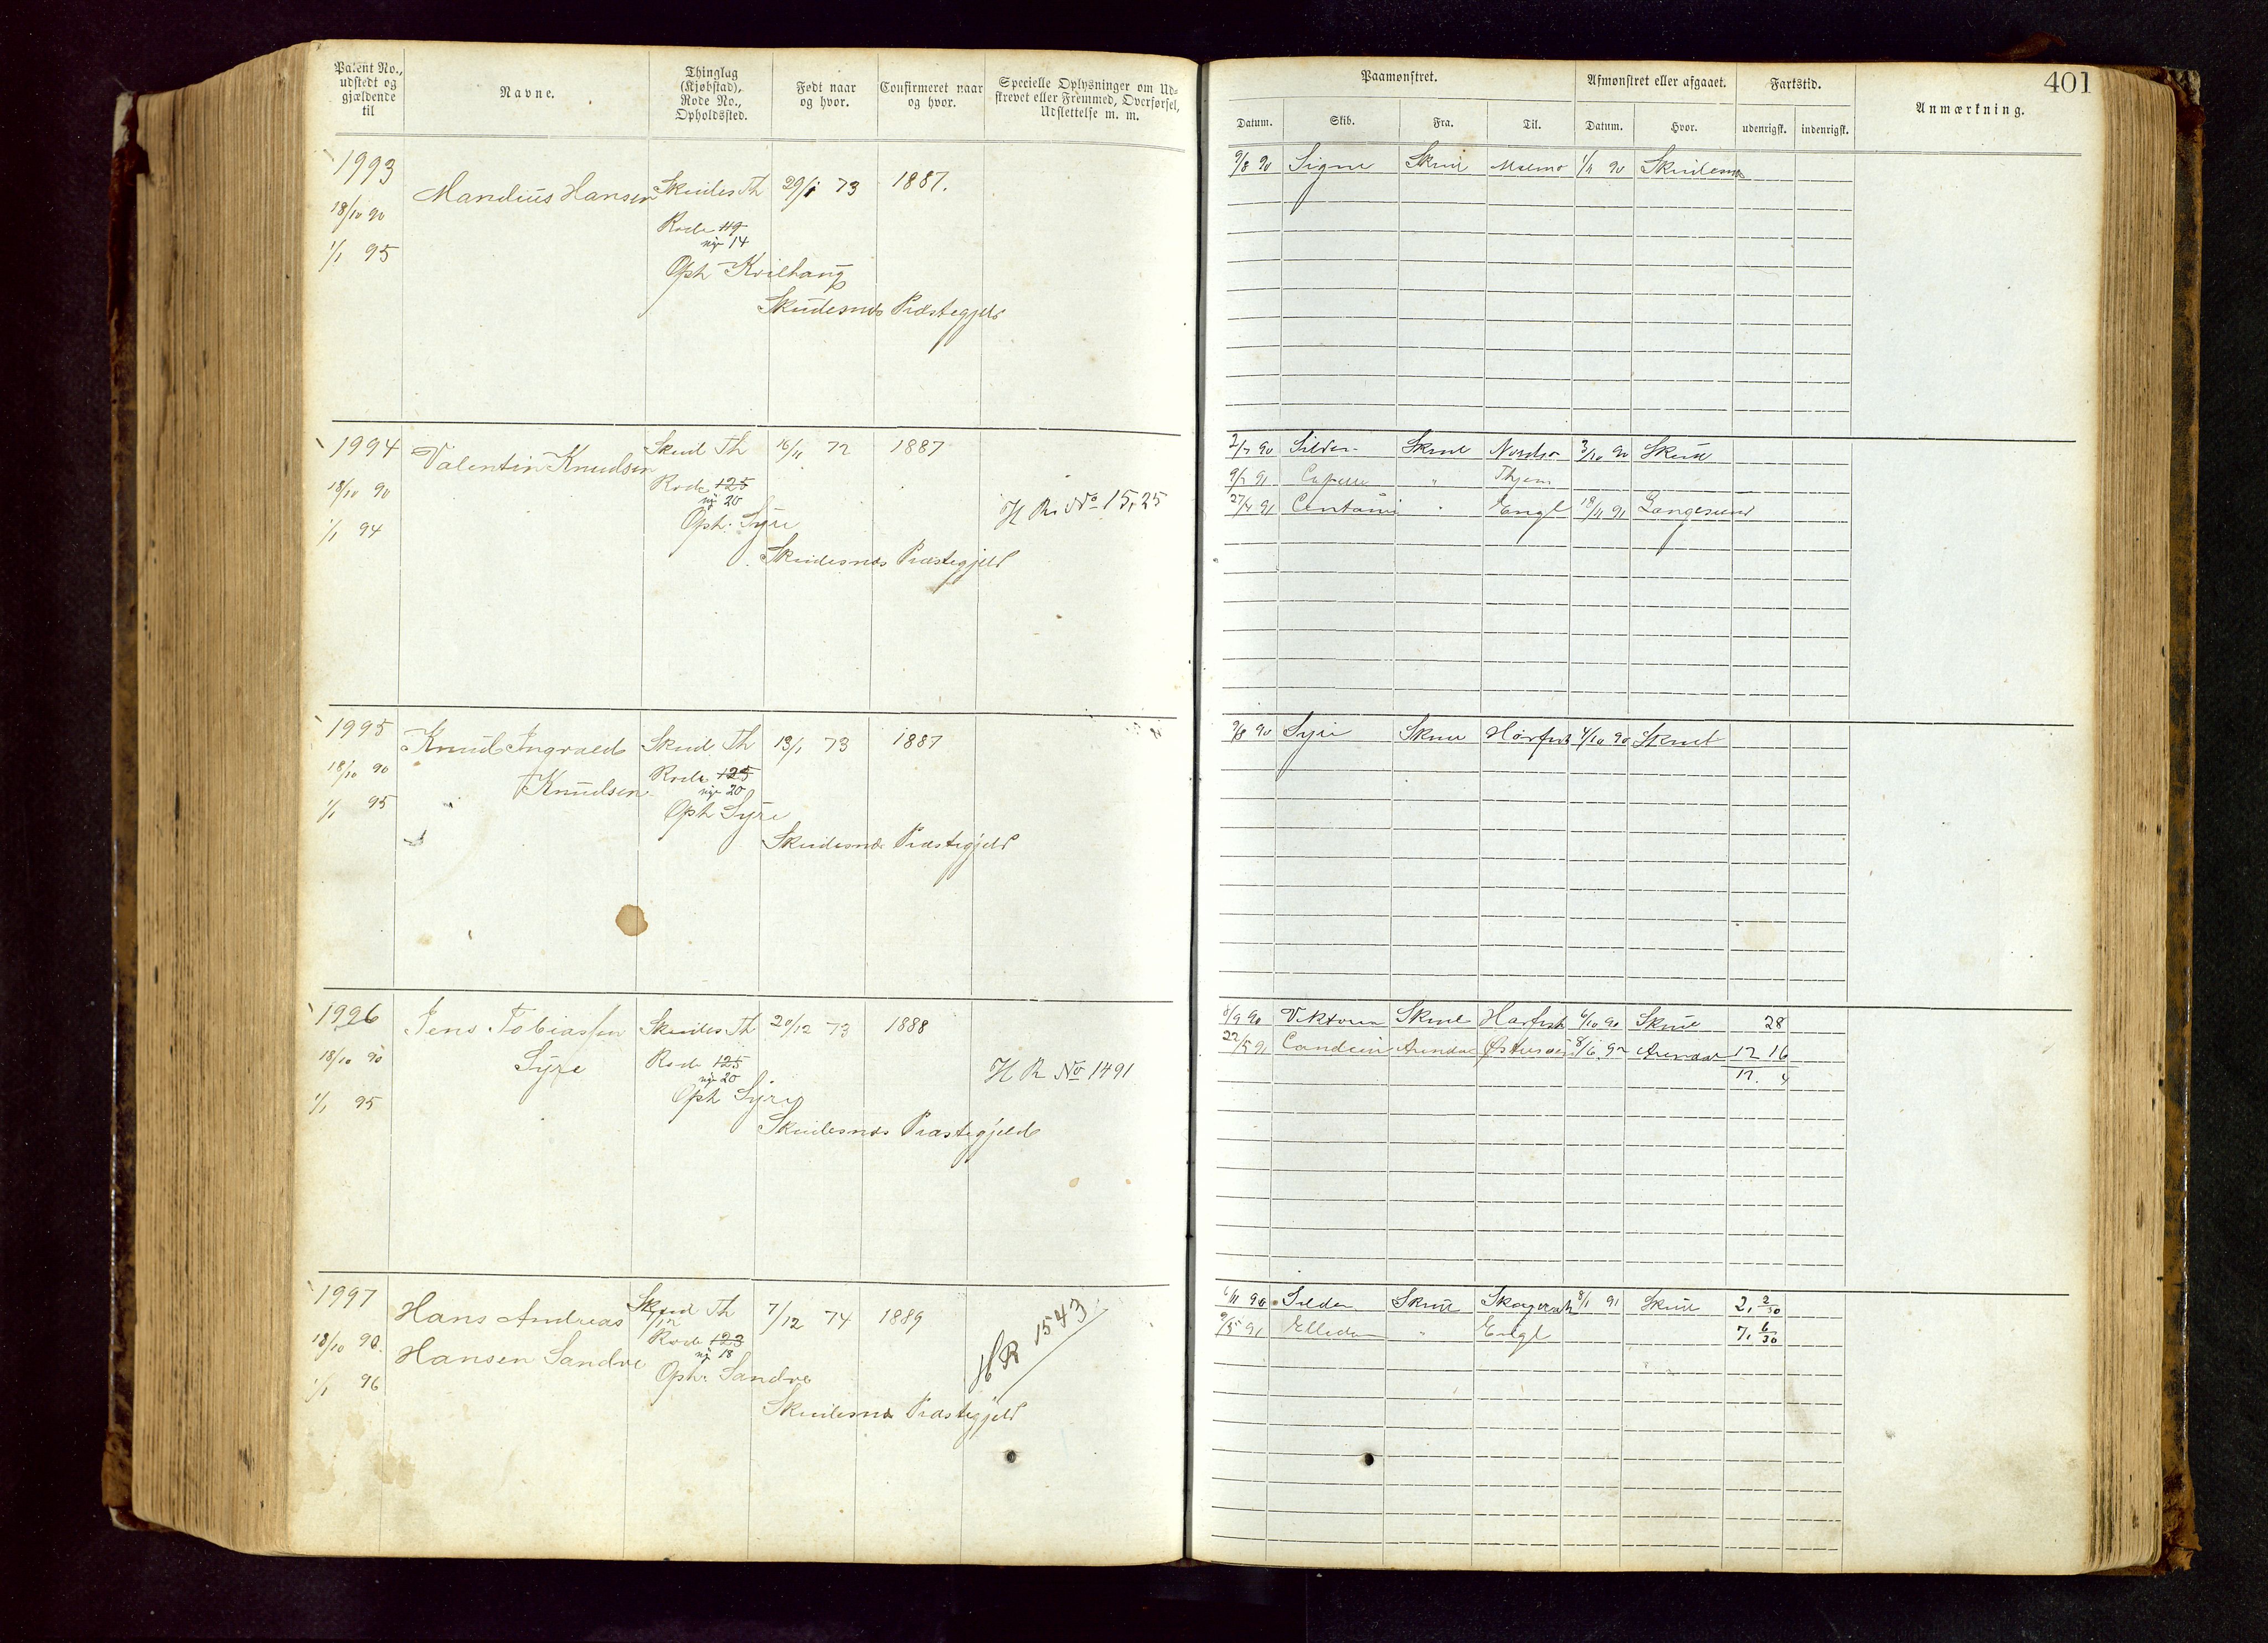 Patent No., udstedt og gjældende til
Navne.
Thinglag (Kjøbstad), Rode No., Opholdssted.
Født naar og hvor.
Confirmeret naar og hvor.
Specielle Oplysninger om Udskrevet eller Fremmed, Overførsel, Udslettelse m. m.
Paamønstret.
Afmønstret eller afgaaet.
Fartstid.
Anmærkning.
401
Datum. Skib. Fra. Til. Datum. Hvor. udenrigsk. indenrigsk.
1993 Mandius Hansen Skudes Th 29/1 73 1887.
18/10 90
Rode 119
ny 14
1/1 95
Oph Kvilhaug
Skudesnæs Præstegjeld
9/8 90 Signe Skud 90 Skudesnæs
1994 Valentin Knudsen Skud Th 16/11 72 1887
18/10 90
Rode 125
ny 20
1/1 94
Oph. Syre
H R. No 15,25
Skudesnæs Præstegjeld
2/7 90 Skude Nordsø 3/10 90 Skud
91 "
27/7 91 " Engl 18/11 91 Langesund
1995 Knud Ingvald Knudsen Skud Th 13/1 73 1887
18/10 90
Rode 125
ny 20
1/1 95
Oph Syre
Skudesnæs Præstegjeld
90 Syre Skude 4/10 90 Skud
1996 Jens Tobiassen Syre Skudes Th 20/12 73 1888
18/10 90
Rode 125
ny 20
1/1 95
Oph Syre
H R No 1491
Skudesnæs Præstegjeld
8/9 90 Viktoria Skude 6/10 90 Skude 28
22/5 91 Arendal Østersøen 8/6 92 Arendal 12 16
1997 Hans Andreas Hansen Sandve Skud Th 7/12 74 1889
18/10 90.
Rode 123
ny 18
1/1 96
Oph. Sandve
HR 1543
Skudesnæs Præstegjeld
90 Skude Skagerak 8/1 91 Skude 2, 2/30
9/5 91 Ellida " Engl 7, 6/30